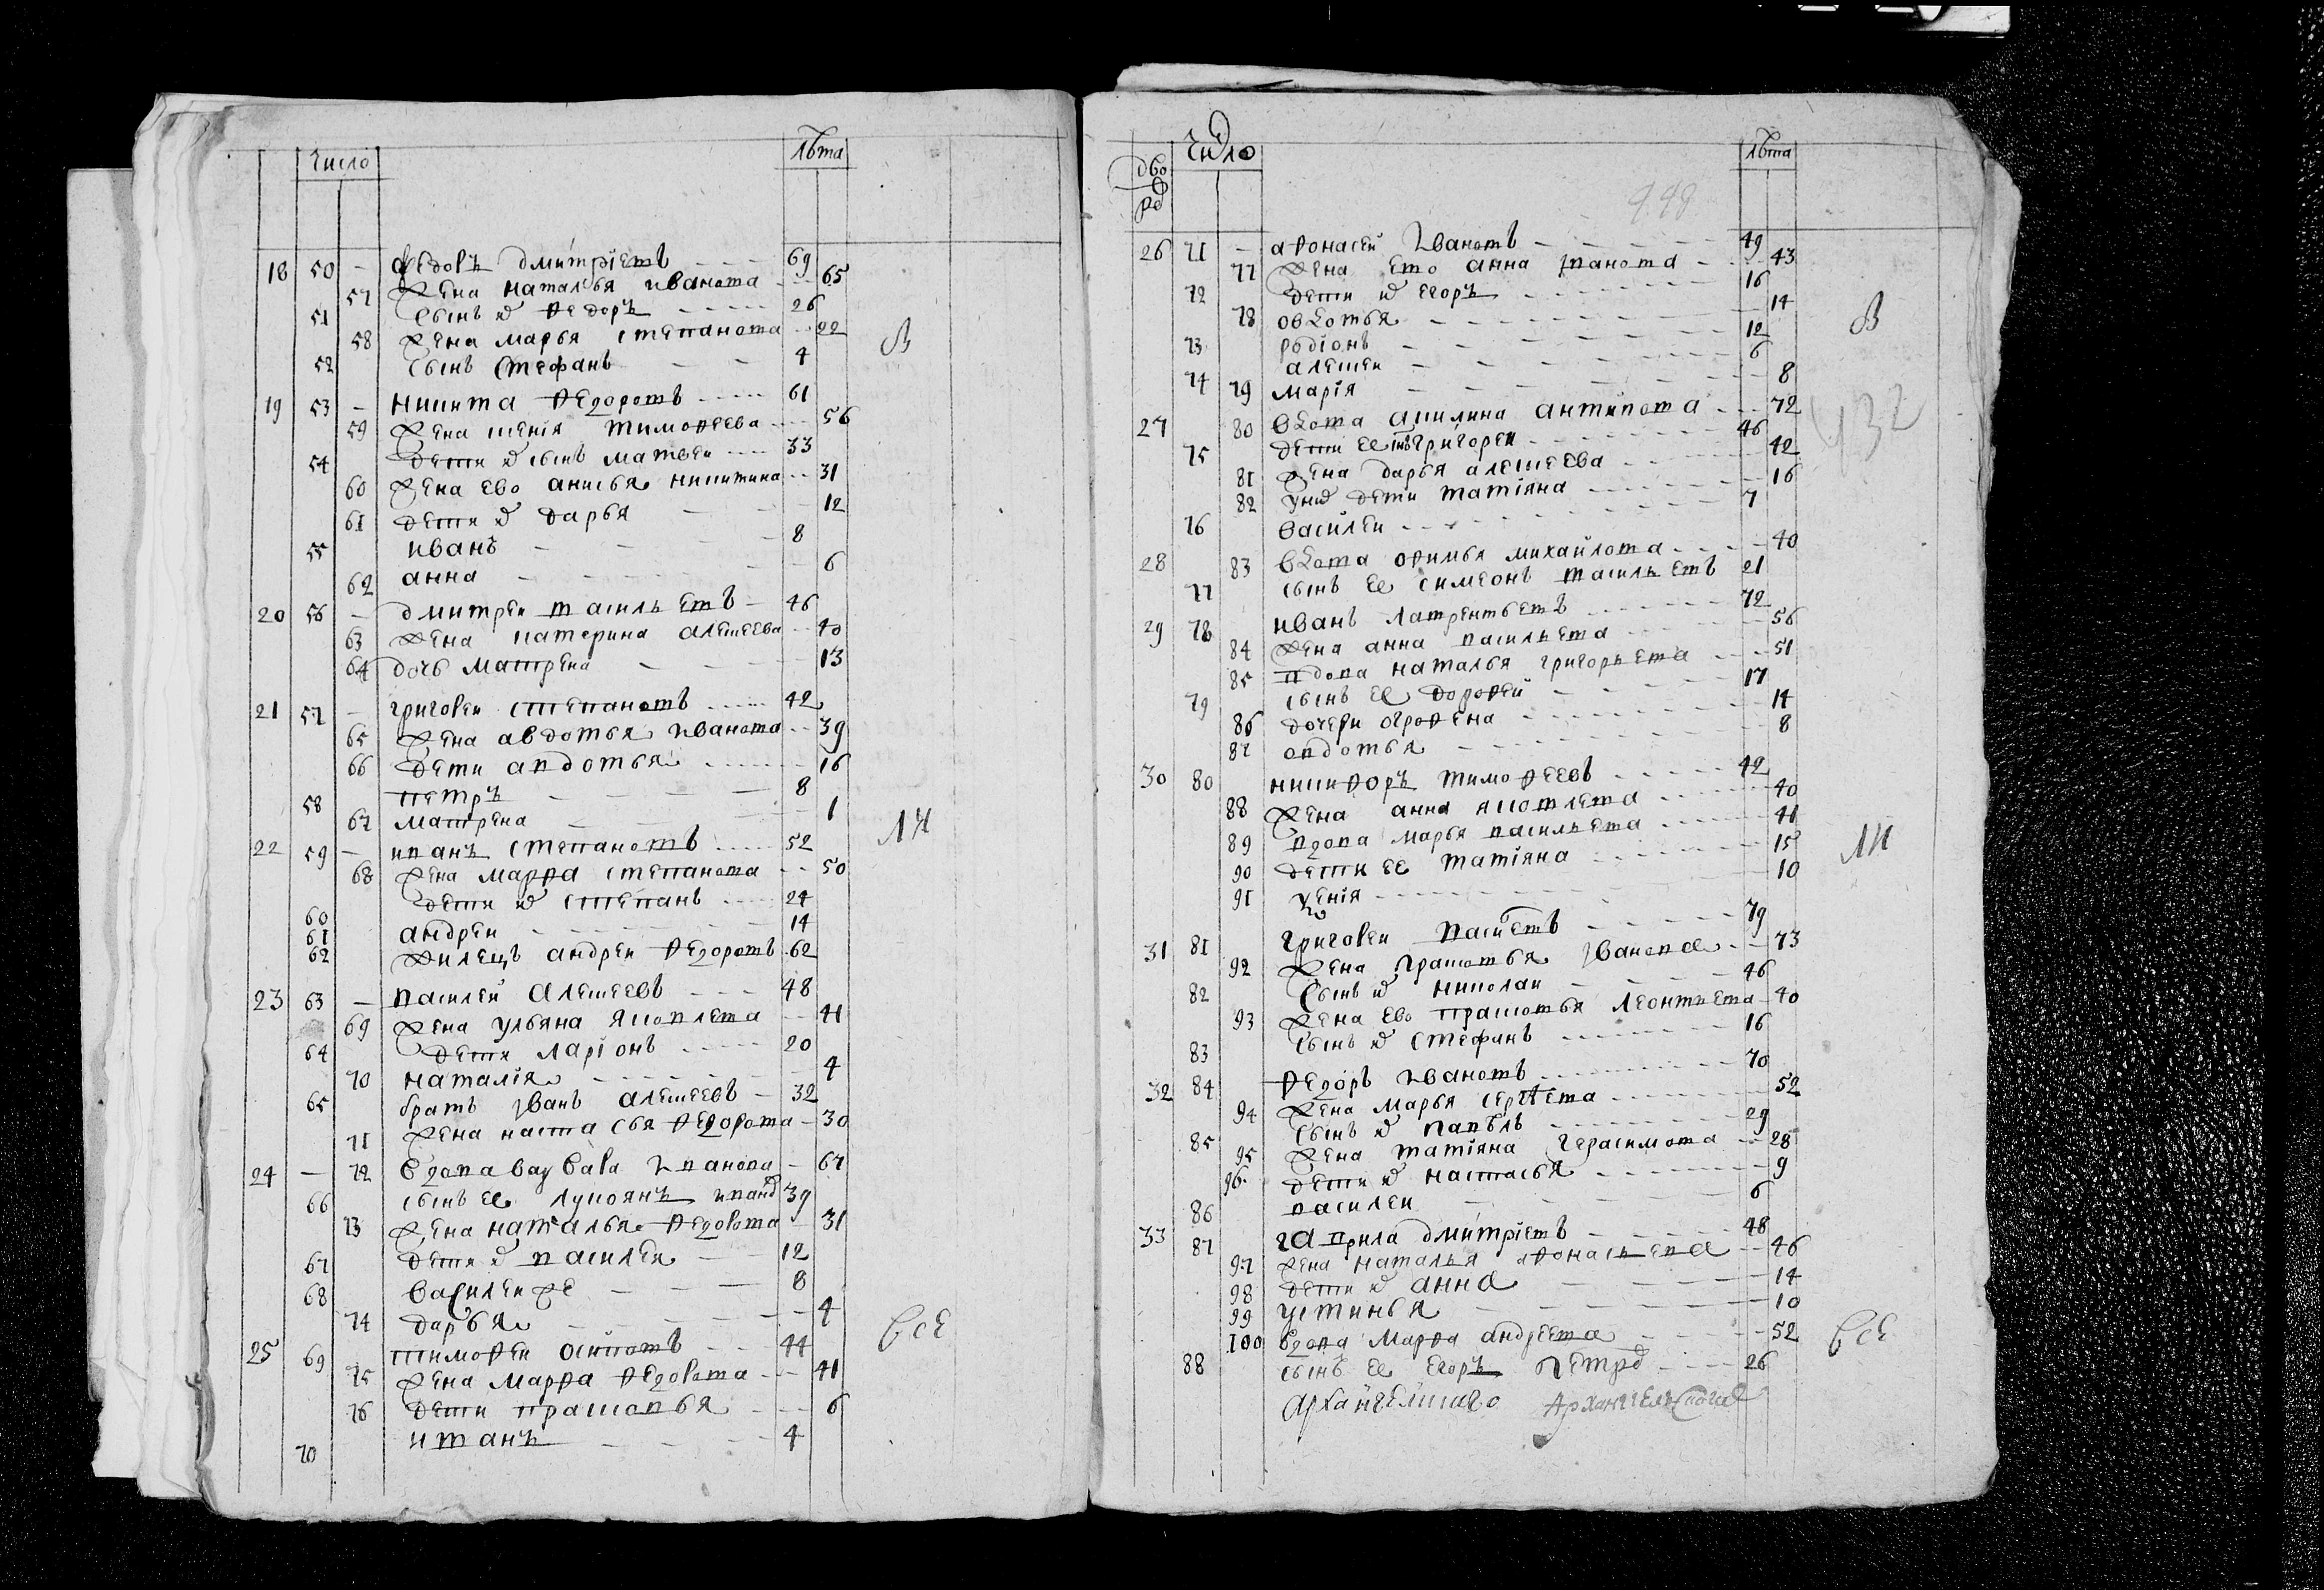 число лѣта
18 50 - Ѳедоръ Дмитріевъ 69
57 жена наталья иванова 65
51 сынъ их Ѳедоръ 26
58 жена марья степанова 22
52 сынъ Стефанъ 4
В
19 53 - никита Ѳедоровъ 61
59 жена ксенія тимоѳеева 56
54 дети их сынъ матвеи 33
60 жена ево анисья никитина 31
61 дети их дарья 12
55 иванъ 8
62 анна 6
20 56 - дмитреи васильевъ 46
63 жена катерина алексеева 40
64 дочь матрена 13
21 57 - григореи степановъ 42
65 жена авдотья иванова 39
66 дети авдотья 16
58 петръ 8
67 матрена 1
ли
22 59 - иванъ степановъ 52
68 жена марѳа степанова 50
60 дети их степанъ 24
61 андреи 14
62 андреи Ѳедоровъ 62
23 63 - василей алексеевъ 48
69 жена ульяна яковлева 41
64 дети ларіонъ 20
70 наталія 4
65 братъ иванъ алексеевъ 32
71 жена настасья Ѳедорова 30
24 - 72 вдова варвара иванова 67
66 сынъ ее лукоянъ иванов 39
73 жена наталья Ѳедорова 31
67 дети их василей 12
68 василеи же 8
74 дарья 4
все
25 69 тимоѳеи осиповъ 44
75 жена марѳа Ѳедорова 41
76 дети прасковья 6
70 иванъ 4
дворы число лѣта
448
26 71 - аѳонасей ивановъ 49
77 жена ево анна иванова 43
72 дети их егоръ 16
78 овдотья 14
73 родіонъ 12
74 алексеи 6
79 марія 8
В
432
27 80 вдова акилина антипова 72
75 дети ее сынъ григореи 46
81 жена дарья алексеева 42
82 у них дети татіяна 16
76 василеи 7
28 83 вдова оѳимья михайлова 40
77 сынъ ее симеонъ васильевъ 21
29 78 иванъ лаврентьевъ 72
84 жена анна васильева 56
85 вдова наталья григорьева 51
79 сынъ ее дороѳей 17
86 дочери огроѳена 14
87 овдотья 8
30 80 никиѳоръ тимоѳеевъ 42
88 жена анна яковлева 40
89 вдова марья васильева 41
90 дети ее татіяна 15
91 ксенія 10
ли
31 81 григореи васильевъ 79
92 жена прасковья иванова 73
82 сынъ их николаи 46
93 жена ево прасковья леонтьева 40
83 сынъ их стефанъ 16
32 84 Ѳедоръ ивановъ 70
94 жена марья сергѣева 52
85 сынъ их павѣлъ 29
95 жена татіяна герасимова 28
96 дети их настасья 9
86 василеи 6
33 87 гаврила дмитріевъ 48
97 жена наталья аѳонасьева 46
98 дети их анна 14
99 устинья 10
100 вдова марѳа андреева 52
88 сынъ ее егоръ петров 26
все
архангелскаго Архангельскагo